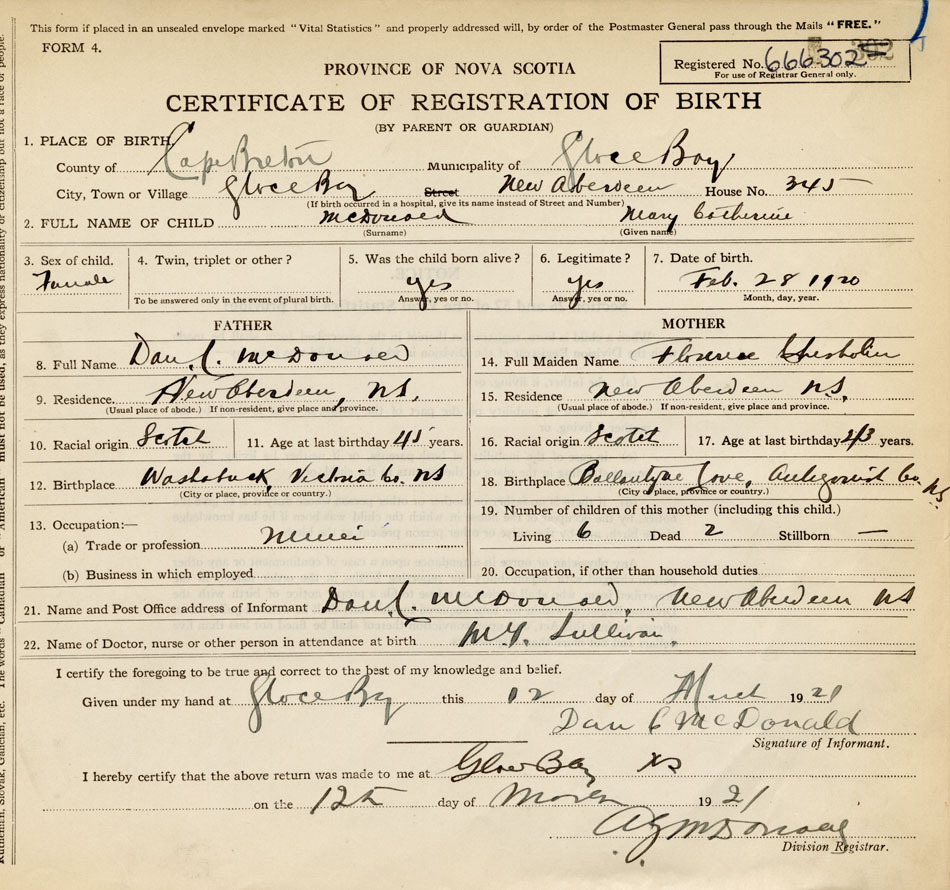 This form if placed in an unsealed envelope marked "Vital Statistics" and properly addressed will, by order of the Postmaster General pass through the Mails "FREE."
FORM 4.
Registered No. 666302
For use of Registrar General only.
PROVINCE OF NOVA SCOTIA
CERTIFICATE OF REGISTRATION OF BIRTH
(BY PARENT OR GUARDIAN)
1. PLACE OF BIRTH,
County of Cape Breton Municipality of Glace Bay
City, Town or Village Glace Bay Street New Aberdeen House No. 345
(If birth occurred in a hospital, give its name instead of Street and Number)
2. FULL NAME OF CHILD McDonald Mary Catherine
(Surname) (Given name)
3. Sex of child. 4. Twin, triplet or other? 5. Was the child born alive? 6. Legitimate? 7. Date of birth.
Female yes yes Feb. 28 1920
To be answered only in the event of plural birth. Answer, yes or no. Answer, yes or no. Month, day, year.
FATHER
8. Full Name Dan C. McDonald
9. Residence New Aberdeen, NS.
(Usual place of abode.) If non-resident, give place and province.
10. Racial origin Scotch 11. Age at last birthday 45 years.
12. Birthplace Washabuck, Victoria Co. NS
(City or place, province or country.)
13. Occupation:—
(a) Trade or profession Miner
(b) Business in which employed
MOTHER
14. Full Maiden Name Florence Chisholm
15. Residence New Aberdeen NS,
(Usual place of abode.) If non-resident, give place and province.
16. Racial origin Scotch 17. Age at last birthday 43 years.
18. Birthplace Ballantyne Cove, Antigonish Co. NS.
(City or place, province or country.)
19. Number of children of this mother (including this child.)
Living 6 Dead 2 Stillborn —
20. Occupation, if other than household duties
21. Name and Post Office address of Informant Dan C. McDonald, New Aberdeen NS
22. Name of Doctor, nurse or other person in attendance at birth Sullivan.
I certify the foregoing to be true and correct to the best of my knowledge and belief.
Given under my hand at Glace Bay this 12 day of March 1921
Dan C McDonald
Signature of Informant.
I hereby certify that the above return was made to me at Glace Bay NS
on the 12th day of March 1921
McDonald
Division Registrar.